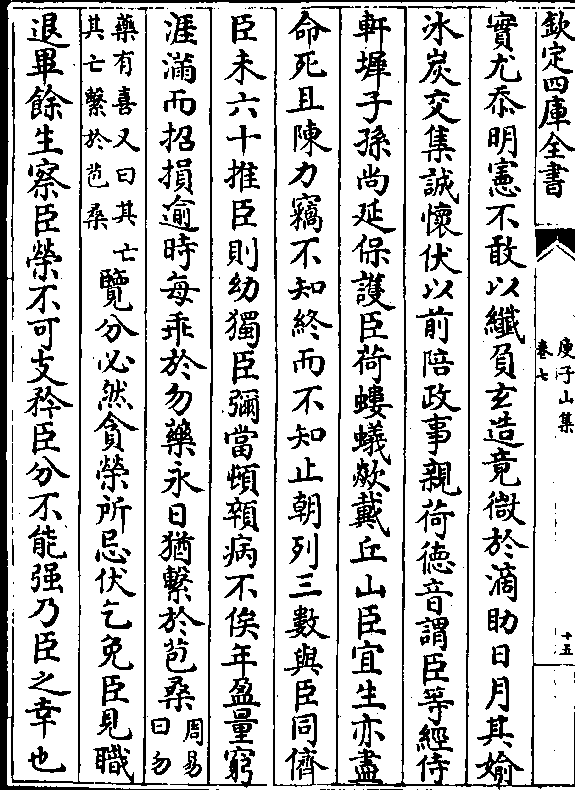 欽定四庫全書
庾子山集
卷七
十五
實尤忝明憲不敢以纖負玄造竟微於滴助日月其媮
冰炭交集誠懷伏以前陪政事親荷德音謂臣等經侍
軒墀子孫尚延保護臣荷螻蟻欻戴丘山臣宜生亦盡
命死且陳力竊不知終而不知止朝列三數與臣同儕
臣未六十推臣則幼獨臣彌當頓顇病不俟年盈量窮
涯滿而招損逾時每乖於勿藥永日猶繫於苞桑周易曰勿
藥有喜又曰其亡其亡繫於苞桑覽分必然貪榮所忌伏乞免臣見職
退畢餘生察臣榮不可支矜臣分不能强乃臣之幸也